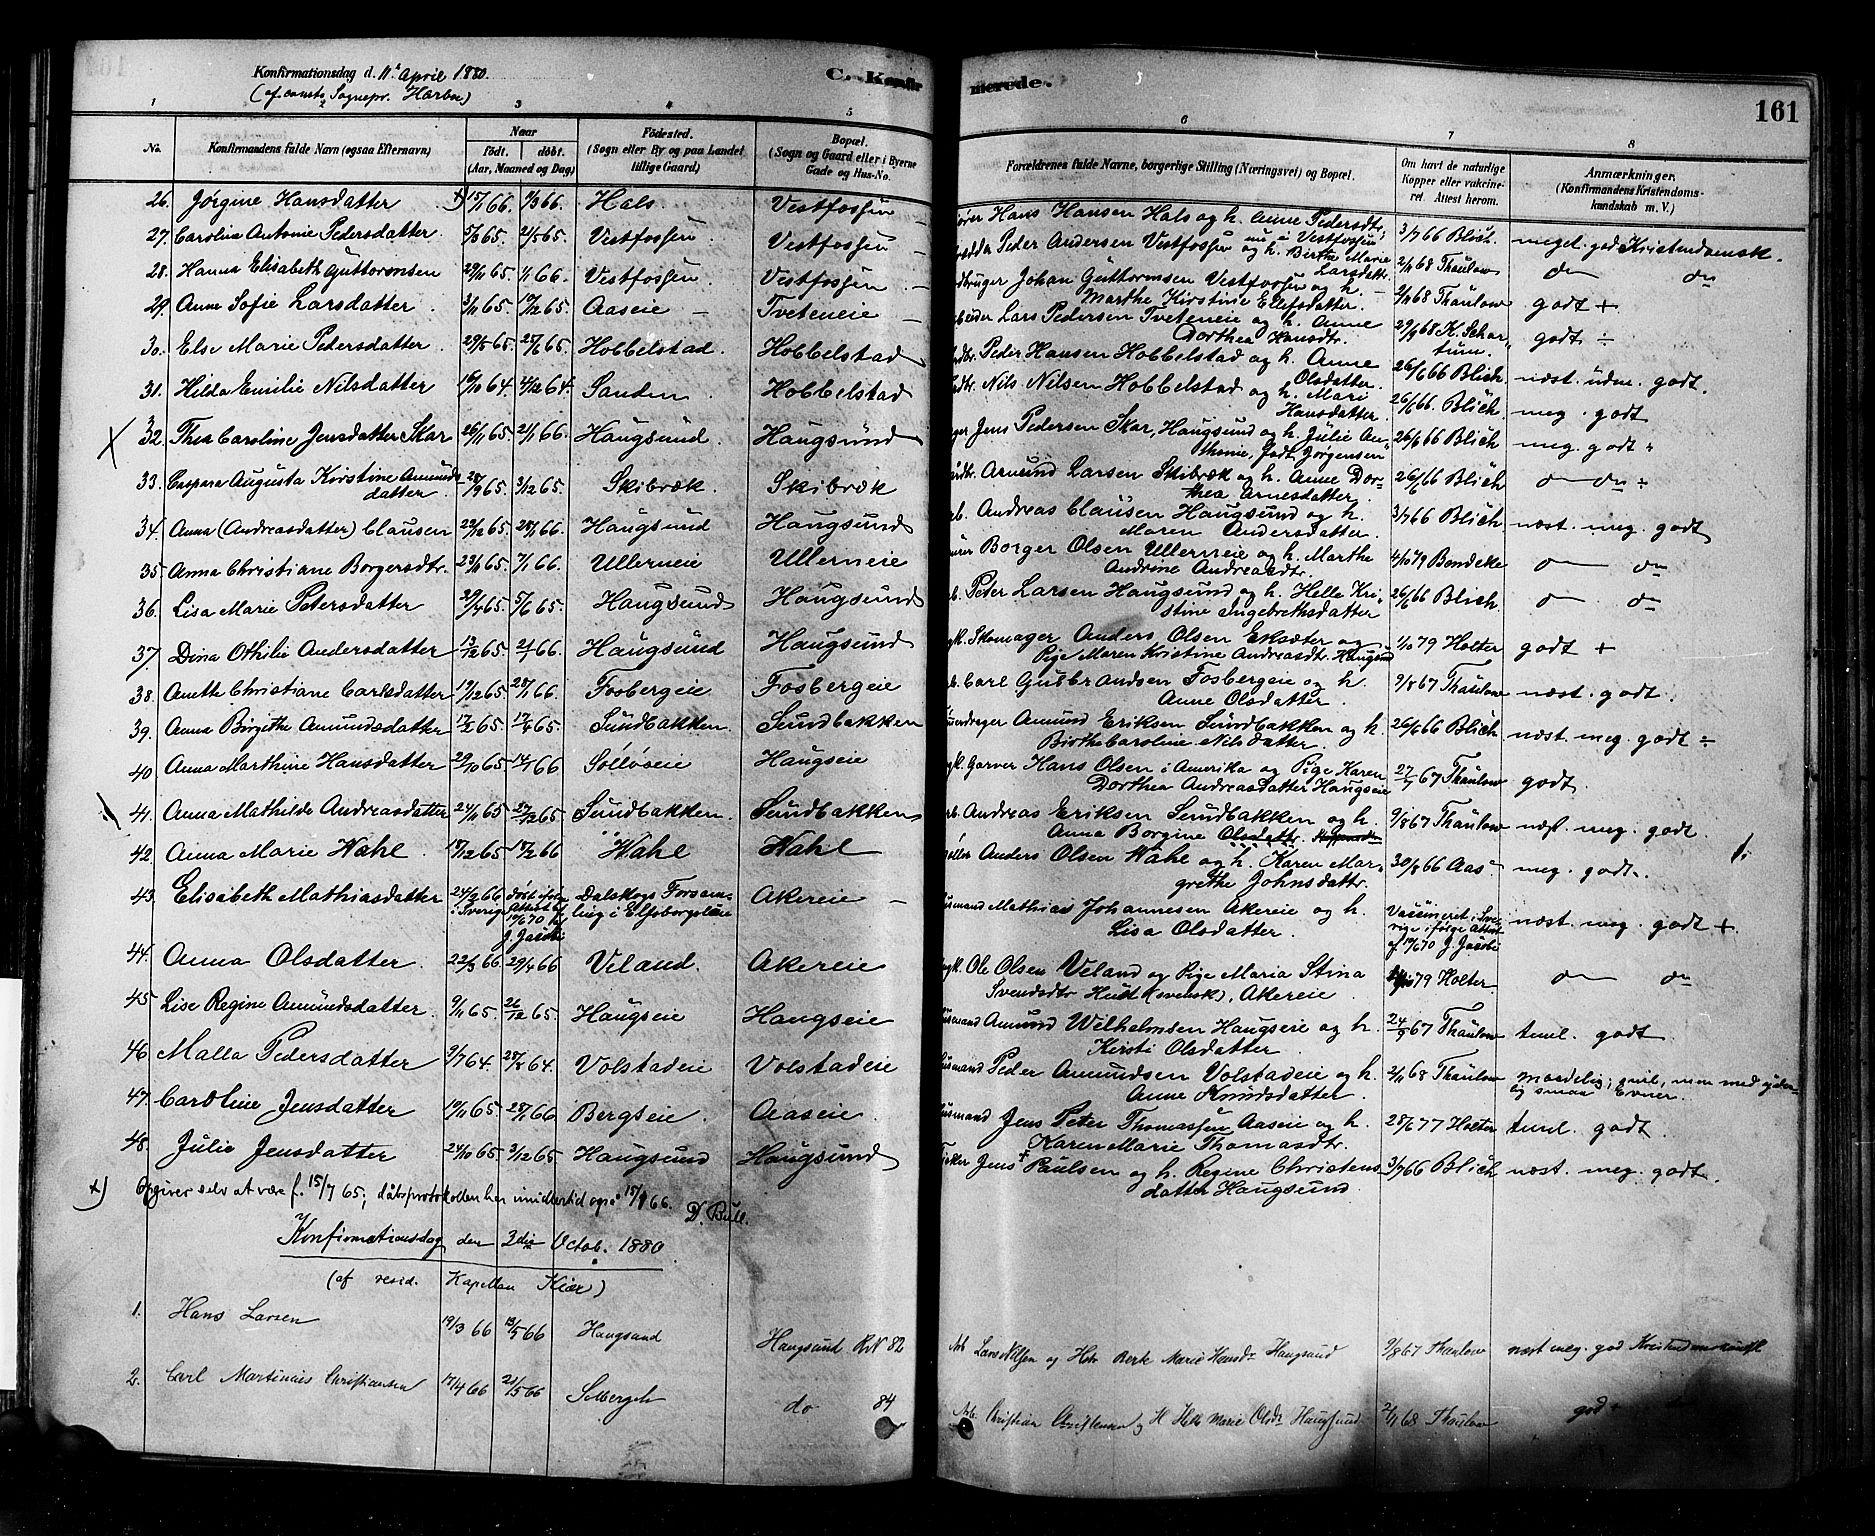 Konfirmationsdag d. 11te April 1880.
C. Konfir merede.
161
(af const. Sognepr. Harboe)
1 2 3 4 5 6 7 8
No. Konfirmandens fulde Navn (ogsaa Efternavn) Naar født. døbt. (Aar, Maaned og Dag) Fødested. (Sogn eller By og paa Landet tillige Gaard) Bopæl. (Sogn og Gaard eller i Byerne Gade og Hus-No. Forældrenes fulde Navne, borgerlige Stilling (Næringsvei) og Bopæl. Om havt de naturlige Kopper eller vakcineret. Attest herom. Anmærkninger. (Konfirmandens Kristendomskundskab m. V.)
26. Jørgine Hansdatter x) 15/7 66. 9/3 66. Hals Vestfossen Hans Hansen Hals og h. Anne Pedersdtr. nu i Vestfossen 3/7 66 Blich. meget god Kristendomsk.
27. Carolia Antonie Pedersdatter 5/3 65. 21/5 65. Vestfossen Vestfossen Peder Andersen Vestfossen og h. Birthe Marie Larsdatter 2/11 68 Thaulow do do
28. Hanna Elisabeth Guttormsen 29/11 65. 1/1 66. Vestfossen Vestfossen Johan Guttormsen Vestfossen og h. Marthe Kirstine Ellefsdatter. 9/11 68 Thaulow godt +
29. Anne Sofie Larsdatter 3/11 65. 19/12 65. Aaseie Tveteneie Lars Pedersen Tveteneie og h. Anne Dorthea Hansdtr. 29/9 68 K. Schartum. godt ÷
30. Else Marie Pedersdatter 29/5 65. 25/6 65. Hobbelstad. Hobbelstad Peder Hansen Hobbelstad og h. Anne Olsdatter. 26/6 66 Blich næst. udm. godt.
31. Hilda Emilie Nilsdatter 15/10 64. 4/12 64. Sanden Hobbelstad Nils Nilsen Hobbelstad og h. Mari Hansdatter. 26/6 66. Blich meg. godt
32. Thea Caroline Jensdatter Skar 26/11 65. 21/1 66. Haugsund. Haugsund Jens Pedersen Skar, Haugsund og h. Julie Anthonie, født Jørgensen 26/6 66 Blich meg. godt
33. Caspara Augusta Kirstine Amundsdatter 28/9 65. 3/12 65. Skibræk. Skibræk Amund Larsen Skibræk og h. Anne Dorthea Arnesdatter. 26/6 66 Blich do do ÷
34. Anna (Andreasdatter) Clausen 29/12 65. 28/1 66. Haugsund Haugsund Andreas Clausen Haugsund og h. Maren Andersdatter. 3/7 66 Blich næst. meg. godt
35. Anna Christiane Borgersdtr. 23/11 65. 7/1 66. Ullerneie Ullerneie Borger Olsen Ullerneie og h. Marthe Andrine Andreasdtr. 4/10 79 Bondekke do do
36. Lisa Marie Petersdatter 29/4 65. 5/6 65. Haugsund Haugsund Peter Larsen Haugsund og h. Helle Kristine Ingebrethsdatter 26/6 66 Blich. do do
37. Dina Othilie Andersdatter 13/12 65. 21/1 66. Haugsund Haugsund Ungk. Skomager Anders Olsen Eksæter og Pige Maren Kristine Andreasdt. Haugsund 1/10 79 Holter godt +
38. Anette Christiane Carlsdatter 19/12 65. 28/1 66. Fosbergeie Fosbergeie Carl Gulbrandsen Fosbergeie og h Anne Olsdatter. 9/8 67 Thaulow næst. godt.
39. Anna Birgithe Amundsdatter 12/2 65. 17/4 65. Sundbakken Sundbakken Amund Eriksen Sundbakken og h. Birthe Caroline Nilsdatter. 26/6 66 Blich næst. meg. godt ÷
40. Anna Marthine Hansdatter 22/10 65. 14/1 66 Solløseie Haugseie Ungk. Garver Hans Olsen i Amerika og Pige Karen Dorthea Andreasdatter Haugseie 27/7 67 Thaulow godt.
41. Anna Mathilde Andreasdatter 24/11 65. 27/12 65. Sundbakken. Sundbakken Andreas Eriksen Sundbakken og h. Anna Borgine Olsdattr. 9/8 67 Thaulow næst. meg. godt.
42. Anna Marie Wahl. 17/12 65 18/2 66 Wahl Wahl Anders Olsen Wahl og h. Karen Margrethe Johnsdattr. 30/8 66 Aas meg. godt.
43. Elisabeth Mathiasdatter 24/2 66 i Sverig døbt ifølge Attest af 19/6 70 J. Jacobi Dalskogs Forsamling i Elfsborgslæn Akereie Husmand Mathias Johannesen Akereie og h. Lisa Olsdatter. Vaccineret i Sverige ifølge Attest af 19/6 70 J. Jacobi næst. meg. godt +
44. Anna Olsdatter. 22/3 66 29/4 66 Veland. Akereie Ungk. Ole Olsen Veland og Pige Maria Stina Svendsdtr Hult (svensk), Akereie 79 Holter. do do
45. Lise Regine Amundsdatter. 9/11 65. 26/12 65. Haugseie Haugseie Husmand Amund Wilhelmsen Haugseie og h. Kirsti Olsdatter 24/9 67 Thaulow teml. godt
46. Malla Pedersdatter 3/7 64. 28/8 64. Volstadeie Volstadeie Husmand Peder Amundsen Volstadeie og h. Anne Knudsdatter. 2/11 68 Thaulow maadelig; men med og smaa Evner.
47. Caroline Jensdatter 19/11 65. 28/1 66 Bergseie. Aaseie Husmand Jens Peter Thomassen Aaseie og h. Karen Marie Thomasdtr. 28/6 77 Holter teml. godt.
48. Julie Jensdatter 24/10 65. 3/12 65 Haugsund Haugsund Jens Paulsen og h. Regine Christensdatter Haugsund 3/7 66 Blich næst. meg. godt.
x) Opgiver selv at være f. 15/7 65; dåbsprotokollen har imidlertid også 15/7 66. D. Bull.
Konfirmationsdag den 3die Octob. 1880
(af resid. Kapellan Kiær)
1. Hans Larsen 19/3 66 13/5 66 Haugsund Haugsund RN 82 Arb. Lars Nilsen og Hstr Berte Marie Hansdr Haugsund 9/8 67 Thaulow næst meg. god Kristendomskundsk.
2. Carl Martinius Christiansen 17/4 66 21/5 66 Solbergeh do 84 Arb. Christian Christensen og H. Helle Marie Olsdr Haugsund 2/11 68 Thaulow god +